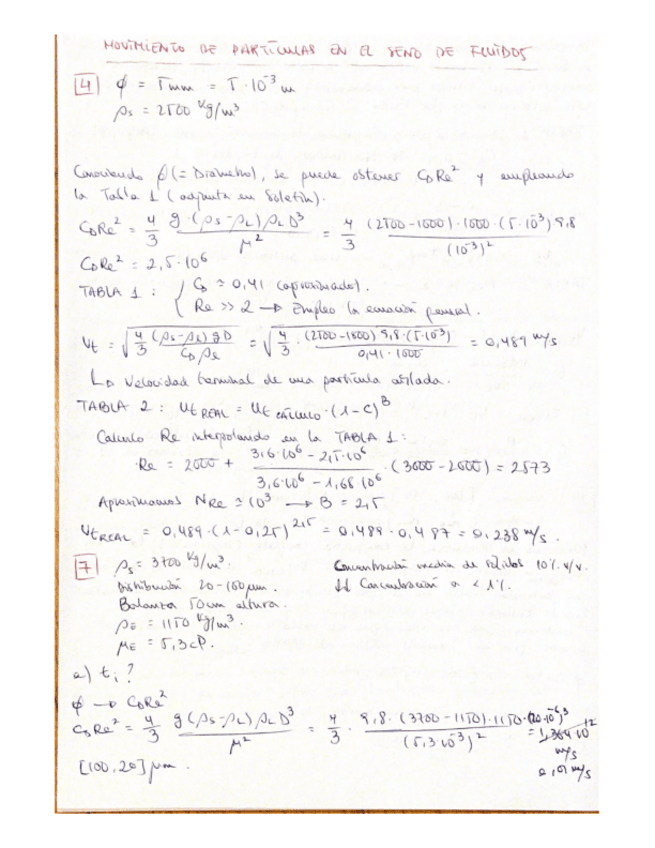 MOVIMIENTO DE PARTÍCULAS EN EL SENO DE FLUIDOS
4 ϕ = 5mm = 5·10⁻³ m
ρs = 2500 Kg/m³
Conociendo ϕ (= Diámetro), se puede obtener CDRe² y empleando
la Tabla 1 (adjunta en Boletín).
CDRe² = 4/3 g·(ρs-ρL)ρL D³/μ² = 4/3 (2500-1000)·1000·(5·10⁻³)9,8/(10⁻³)²
CDRe² = 2,5·10⁶
TABLA 1 : { CD ≃ 0,41 (aproximado).
Re >> 2 → Empleo la ecuación general.
Ut = √(4/3 (ρs-ρL)gD/CD ρL) = √(4/3 · (2500-1000)9,8·(5·10⁻³)/0,41·1000) = 0,489 m/s
↳ Velocidad terminal de una partícula aislada.
TABLA 2 : Ut REAL = Ut CÁLCULO·(1-C)ᴮ
Calculo Re interpolando en la TABLA 1:
Re = 2000 + 3,6·10⁶ - 2,5·10⁶/3,6·10⁶ - 1,68·10⁶ ·(3000-2000) = 2573
Aproximamos NRe ≃ 10³ → B = 2,5
Ut REAL = 0,489·(1-0,25)²,⁵ = 0,489·0,487 = 0,238 m/s.
7 ρs = 3700 Kg/m³. Concentración media de sólidos 10% v/v.
Distribución 20-100 μm. Concentración a < 1%.
Balanza 50cm altura.
ρE = 1150 Kg/m³.
μE = 5,3cP.
a) ti?
ϕ → CDRe²
CDRe² = 4/3 g(ρs-ρL)ρL D³/μ² = 4/3 · 9,8·(3700-1150)·1150·(20·10⁻⁶)³/(5,3·10⁻³)²
m/s
[100,20] μm. 0,01 m/s